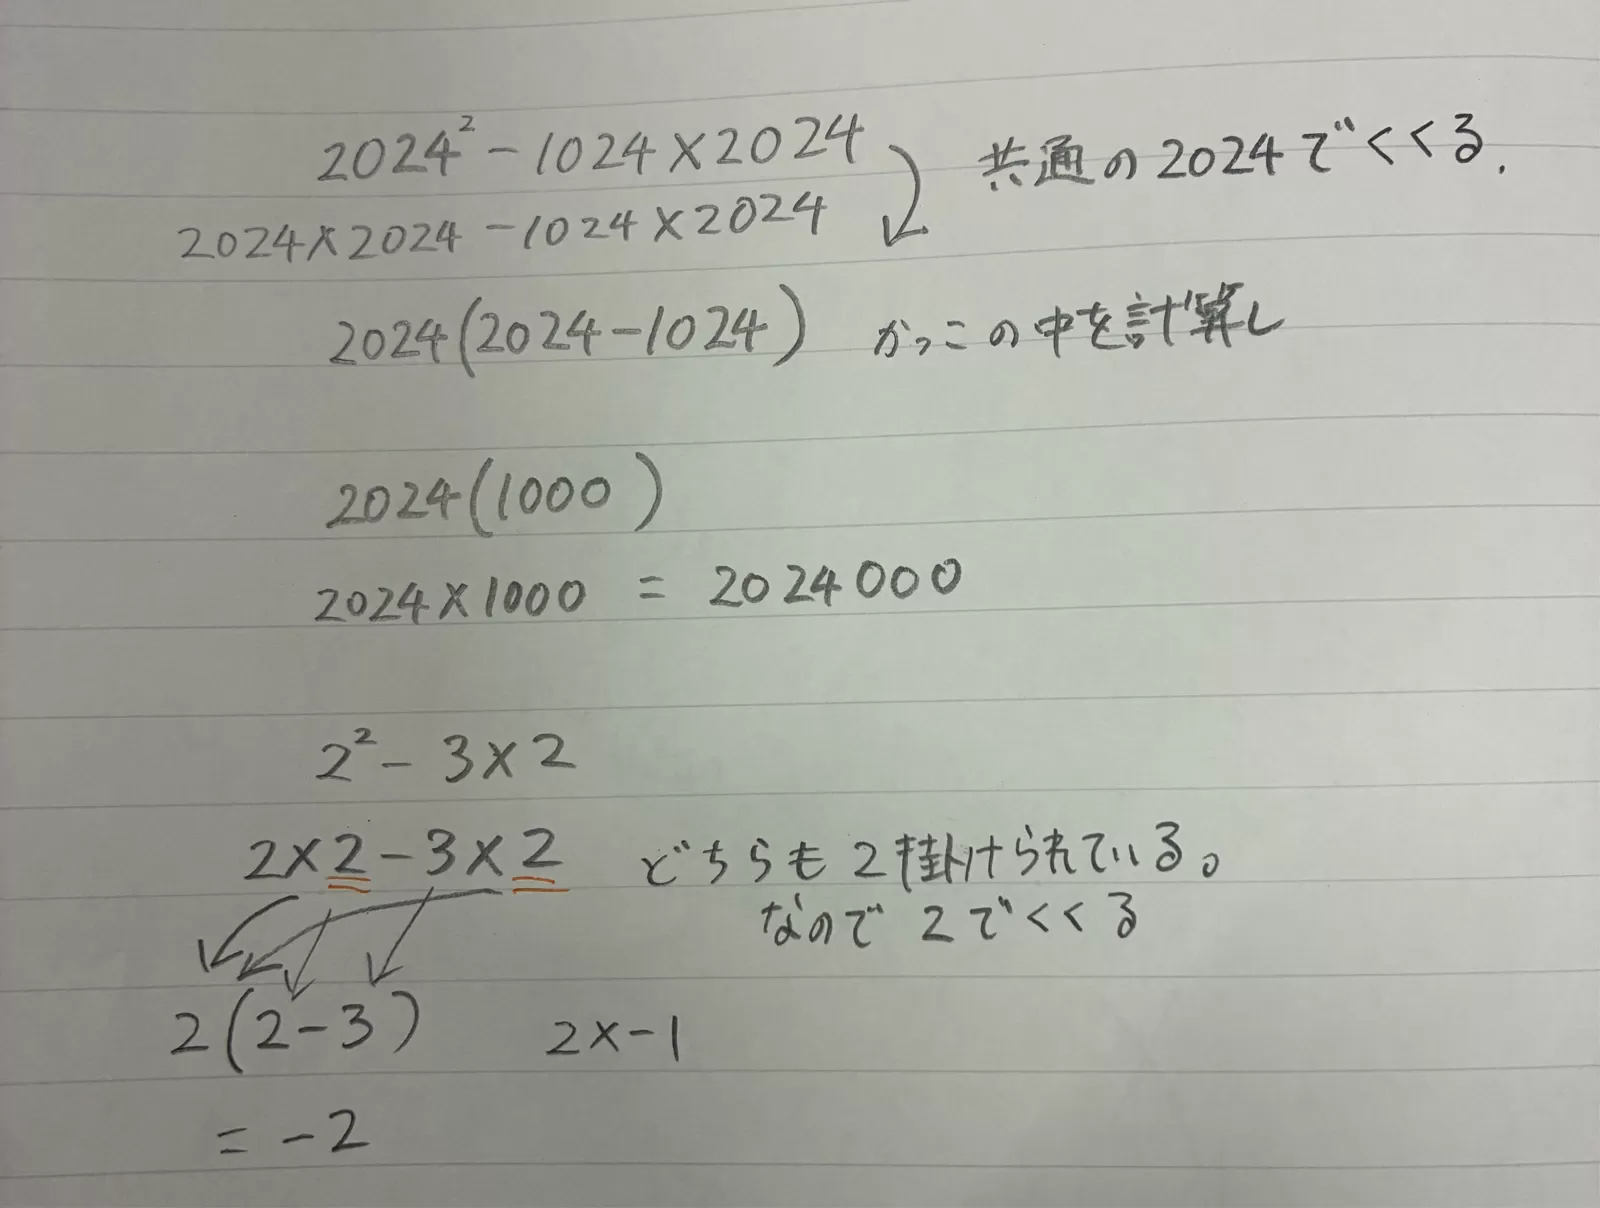 2024² - 1024 × 2024 共通の2024でくくる.
2024 × 2024 - 1024 × 2024
2024(2024 - 1024) かっこの中を計算し
2024(1000)
2024 × 1000 = 2024000
2² - 3 × 2
2 × 2 - 3 × 2 どちらも2掛けられている。
なので2でくくる
2(2 - 3) 2 × -1
= -2